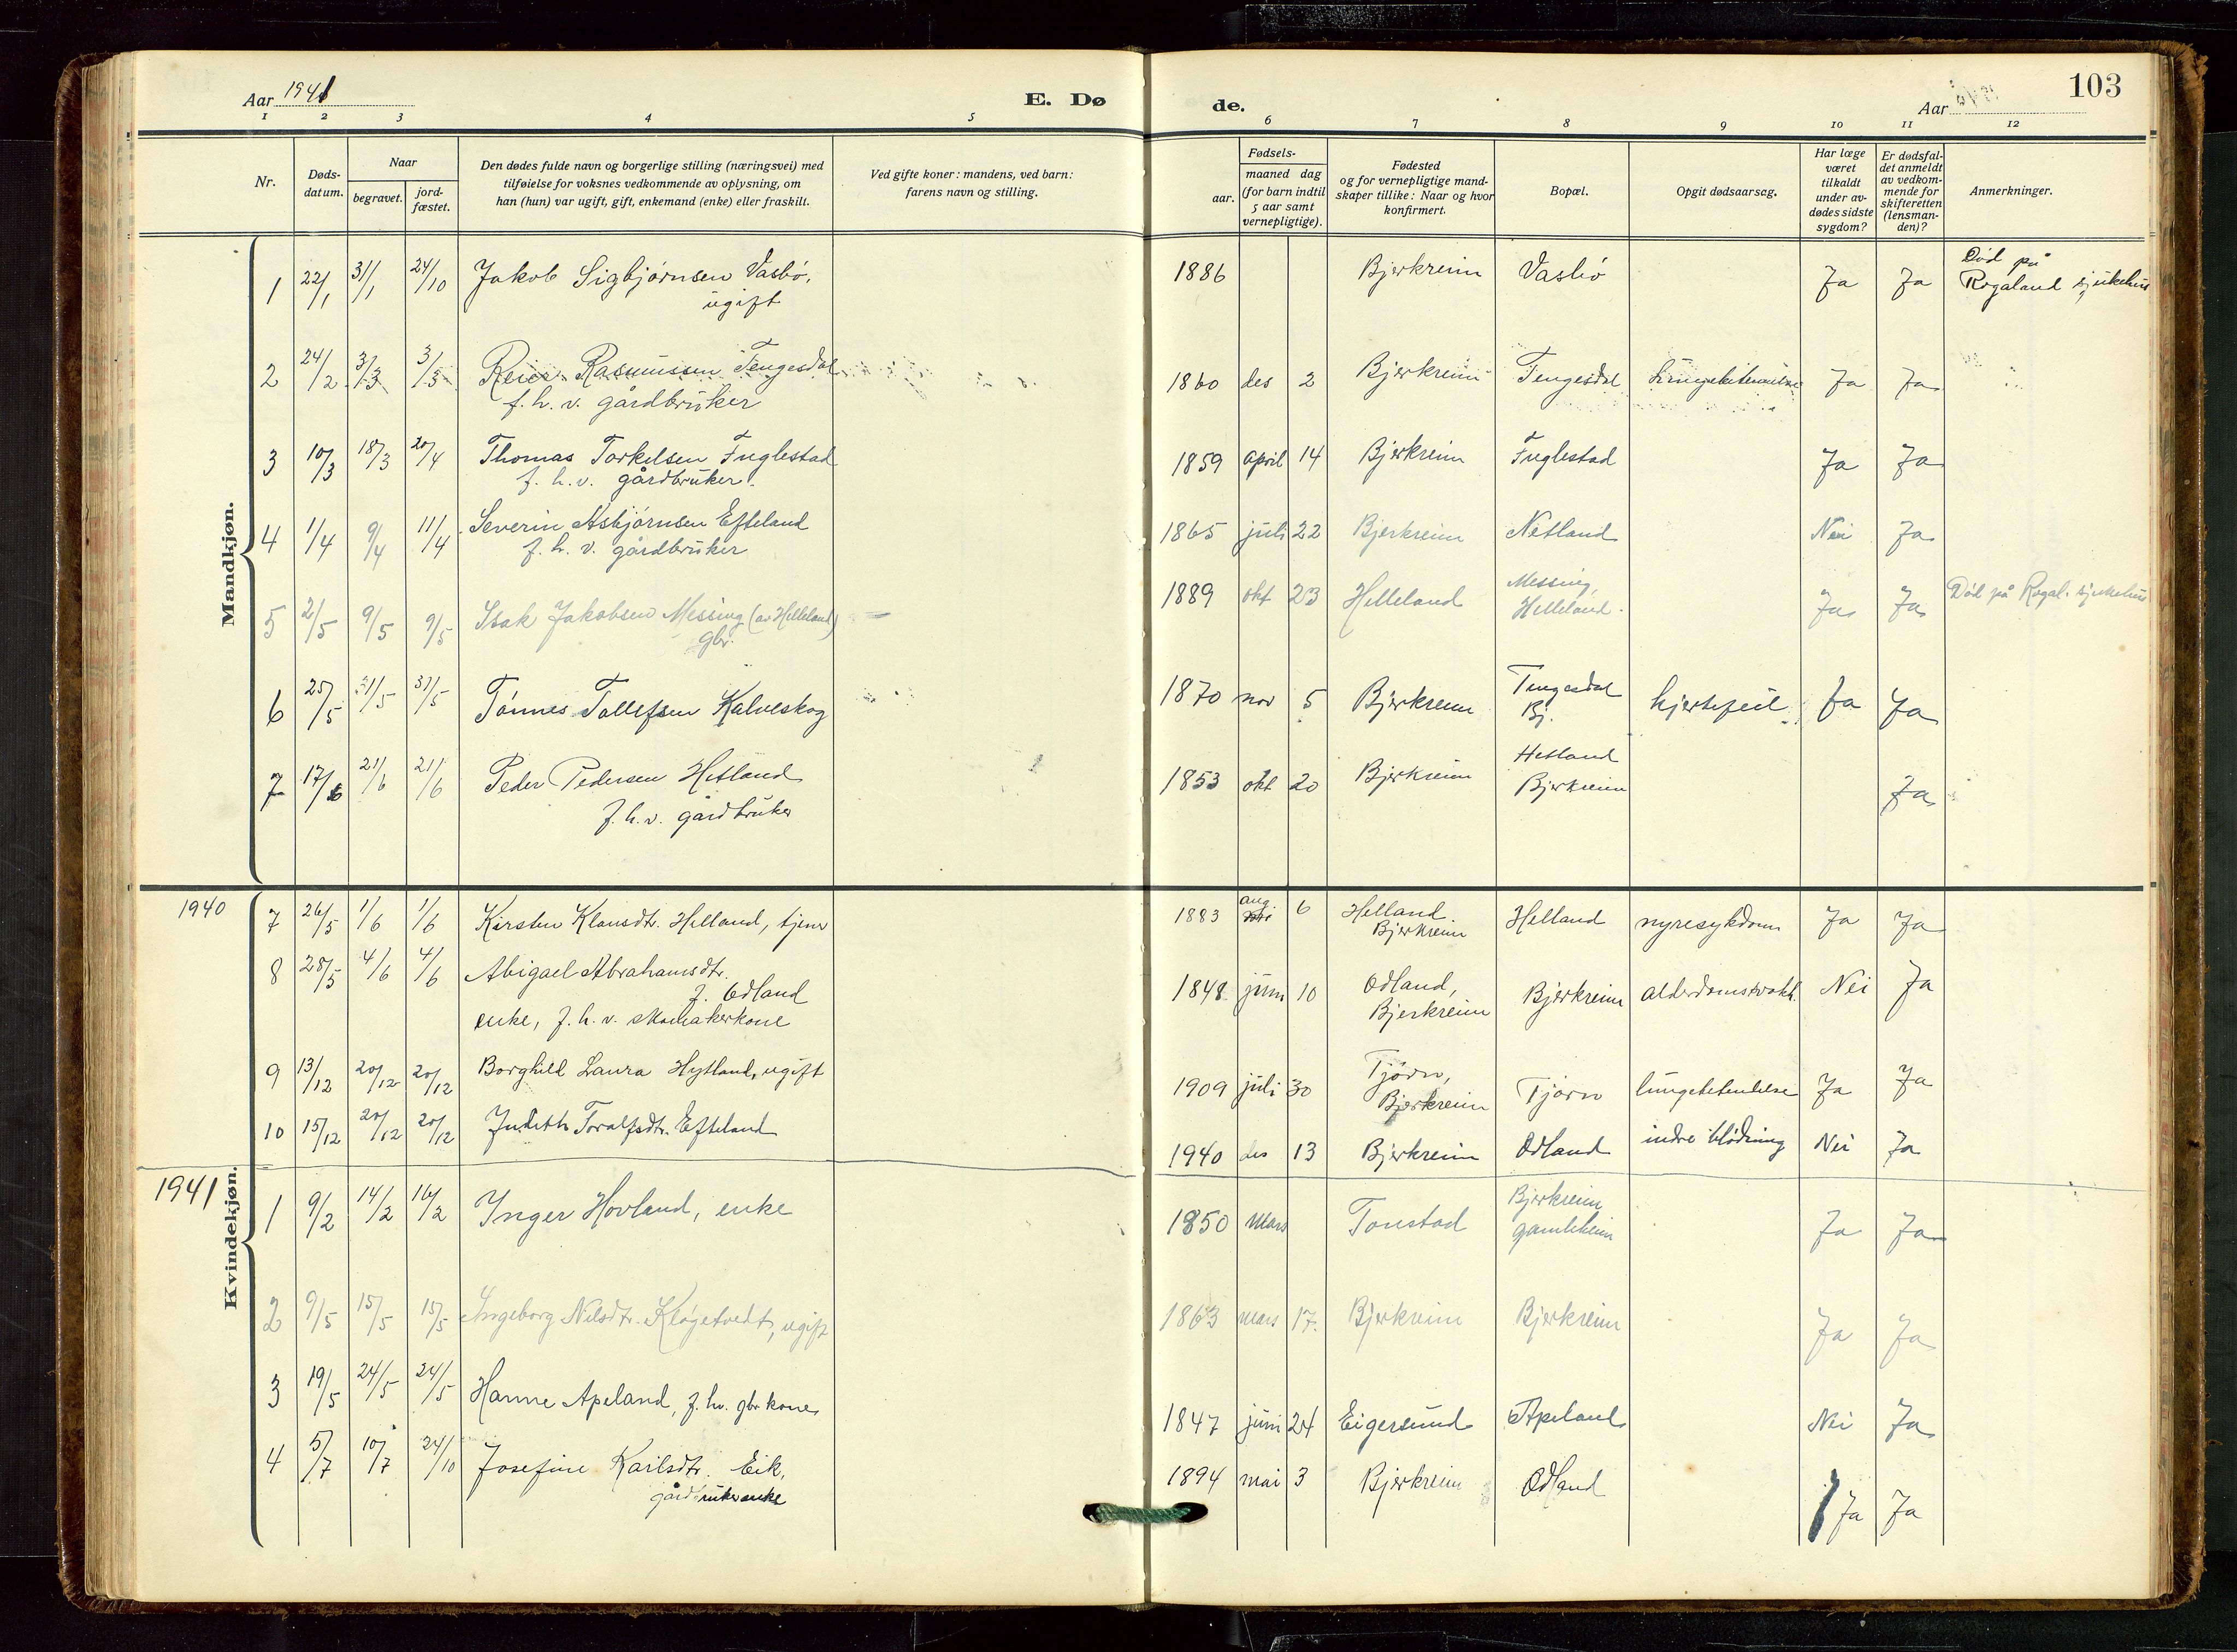 Aar 1941
E. Dø
de.
Aar
103
1 2 3 4 5 6 7 8 9 10 11 12
Nr.
Døds-
datum.
Naar
begravet.
jord-
fæstet.
Den dødes fulde navn og borgerlige stilling (næringsvei) med
tilføielse for voksnes vedkommende av oplysning, om
han (hun) var ugift, gift, enkemand (enke) eller fraskilt.
Ved gifte koner: mandens, ved barn:
farens navn og stilling.
Fødsels-
aar.
maaned dag
(for barn indtil
5 aar samt
vernepligtige).
Fødested
og for vernepligtige mand-
skaper tillike: Naar og hvor
konfirmert.
Bopæl.
Opgit dødsaarsag.
Har læge
været
tilkaldt
under av-
dødes sidste
sygdom?
Er dødsfal-
det anmeldt
av vedkom-
mende for
skifteretten
(lensman-
den)?
Anmerkninger.
Mandkjøn.
1 22/1 31/1 24/10 Jakob Sigbjørnsen Vasbø, 1886 Bjerkreim Vasbø Ja Ja Død på
ugift Rogaland sjukehus
2 24/2 3/3 3/3 Reier Rasmussen Tengesdal 1860 des 2 Bjerkreim Tengesdal Ja Ja
f.h.v. gårdbruker
3 10/3 18/3 20/4 Thomas Torkelsen Fuglestad 1859 april 14 Bjerkreim Fuglestad Ja Ja
f.h.v. gårdbruker.
4 1/4 9/4 11/4 Severin Asbjørnsen Efteland 1865 juli 22 Bjerkreim Netland Nei Ja
f.h.v. gårdbruker
5 2/5 9/5 9/5 Isak Jakobsen Messing (av Helleland) 1889 okt 23 Helleland Messing Ja Ja Død på Rogal. sjukehus
gbr. Helleland
6 25/5 31/5 31/5 Tønnes Tollefsen Kalveskog 1870 nov 5 Bjerkreim Tengesdal hjertefeil. Ja Ja
Bj.
7 17/6 21/6 21/6 Peder Pedersen Hetland 1853 okt 20 Bjerkreim Hetland Ja
f.h.v. gårdbruker Bjerkreim
1940
7 26/5 1/6 1/6 Kirsten Klausdtr. Helland, tjener 1883 aug. 6 Helland. Helland nyresykdom Ja Ja
Bjerkreim
8 28/5 4/6 4/6 Abigael Abrahamsdtr. 1848 juni 10 Odland, Bjerkreim Nei Ja
f. Odland Bjerkreim
enke, f.h.v. skomakerkone
9 13/12 20/12 20/12 Borghild Laura Hytland, ugift 1909 juli 30 Tjørn, Tjørn lungebetendelse Ja Ja
Bjerkreim
10 15/12 20/12 20/12 Judith Toralfsdtr. Efteland 1940 des 13 Bjerkreim Odland indre blødning Nei Ja
1941
Kvindekjøn.
1 9/2 14/2 16/2 Inger Hovland, enke 1850 mars Tonstad Bjerkreim Ja Ja
gamleheim
2 9/5 15/5 15/5 Ingeborg Nilsdtr. Kløgetvedt, ugift 1863 mars 17. Bjerkreim Bjerkreim Ja Ja
3 19/5 24/5 24/5 Hanne Apeland, f.hv. gbr kone 1847 juni 24 Eigersund Apeland Nei Ja
4 5/7 10/7 24/10 Josefine Karlsdtr. Eik, 1894 mai 3 Bjerkreim Odland Ja Ja
gårdbrukerenke